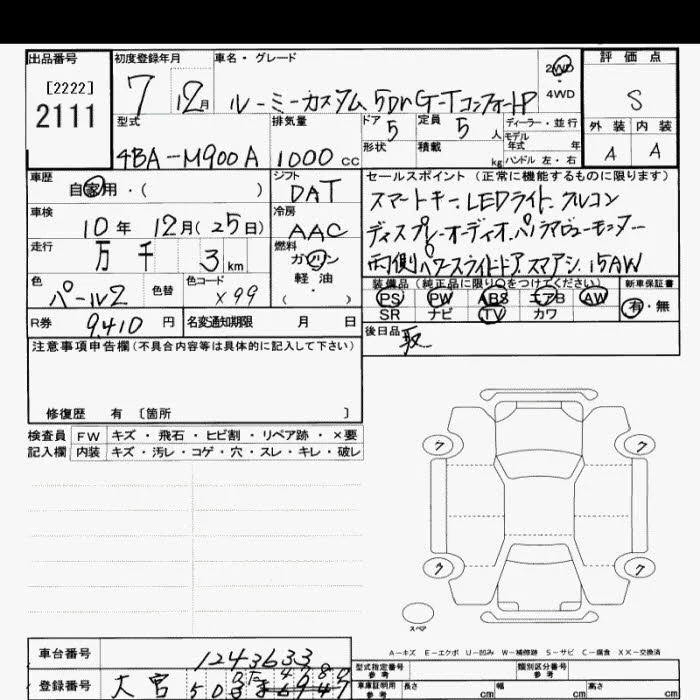 出品番号 初度登録年月 車名・グレード 2WD 評価点
[2222] 2111 7 12月 ルーミーカスタム 5Dr G-TコンフォートP 4WD S
型式 排気量 ドア 5 定員 5 人 ディーラー・並行 外装 内装
4BA-M900A 1000 cc 形状 積載 kg モデル年式 年 ハンドル 左・右 A A
車歴 自家用・( ) シフト DAT セールスポイント (正常に機能するものに限ります)
車検 10年 12月(25日) 冷房 AAC スマートキー. LEDライト. クルコン
ディスプレーオーディオ.パノラマビューモニター
走行 万 千 3 km 燃料 ガソリン・軽油 ( ) 両側パワースライドドア スマアシ. 15AW
色 パール2 色替 色コード X99 装備品 (純正品に限り○をつけてください) 新車保証書
PS PW ABS エアB AW 有・無
R券 9410 円 名変通知期限 月 日 SR ナビ TV カワ
注意事項申告欄 (不具合内容等は具体的に記入して下さい) 後日品 取
修復歴 有 〔箇所 〕
検査員 FW キズ・飛石・ヒビ割・リペア跡・×要
記入欄 内装 キズ・汚レ・コゲ・穴・スレ・キレ・破レ
7 7
7 7
スペア
A－キズ E－エクボ U－凹み W－補修跡 S－サビ C－腐食 XX－交換済
車台番号 1243633 型式指定番号 参考 類別区分番号 参考
登録番号 大宮 車庫証明用 参考 長さ cm 幅 cm 高さ cm